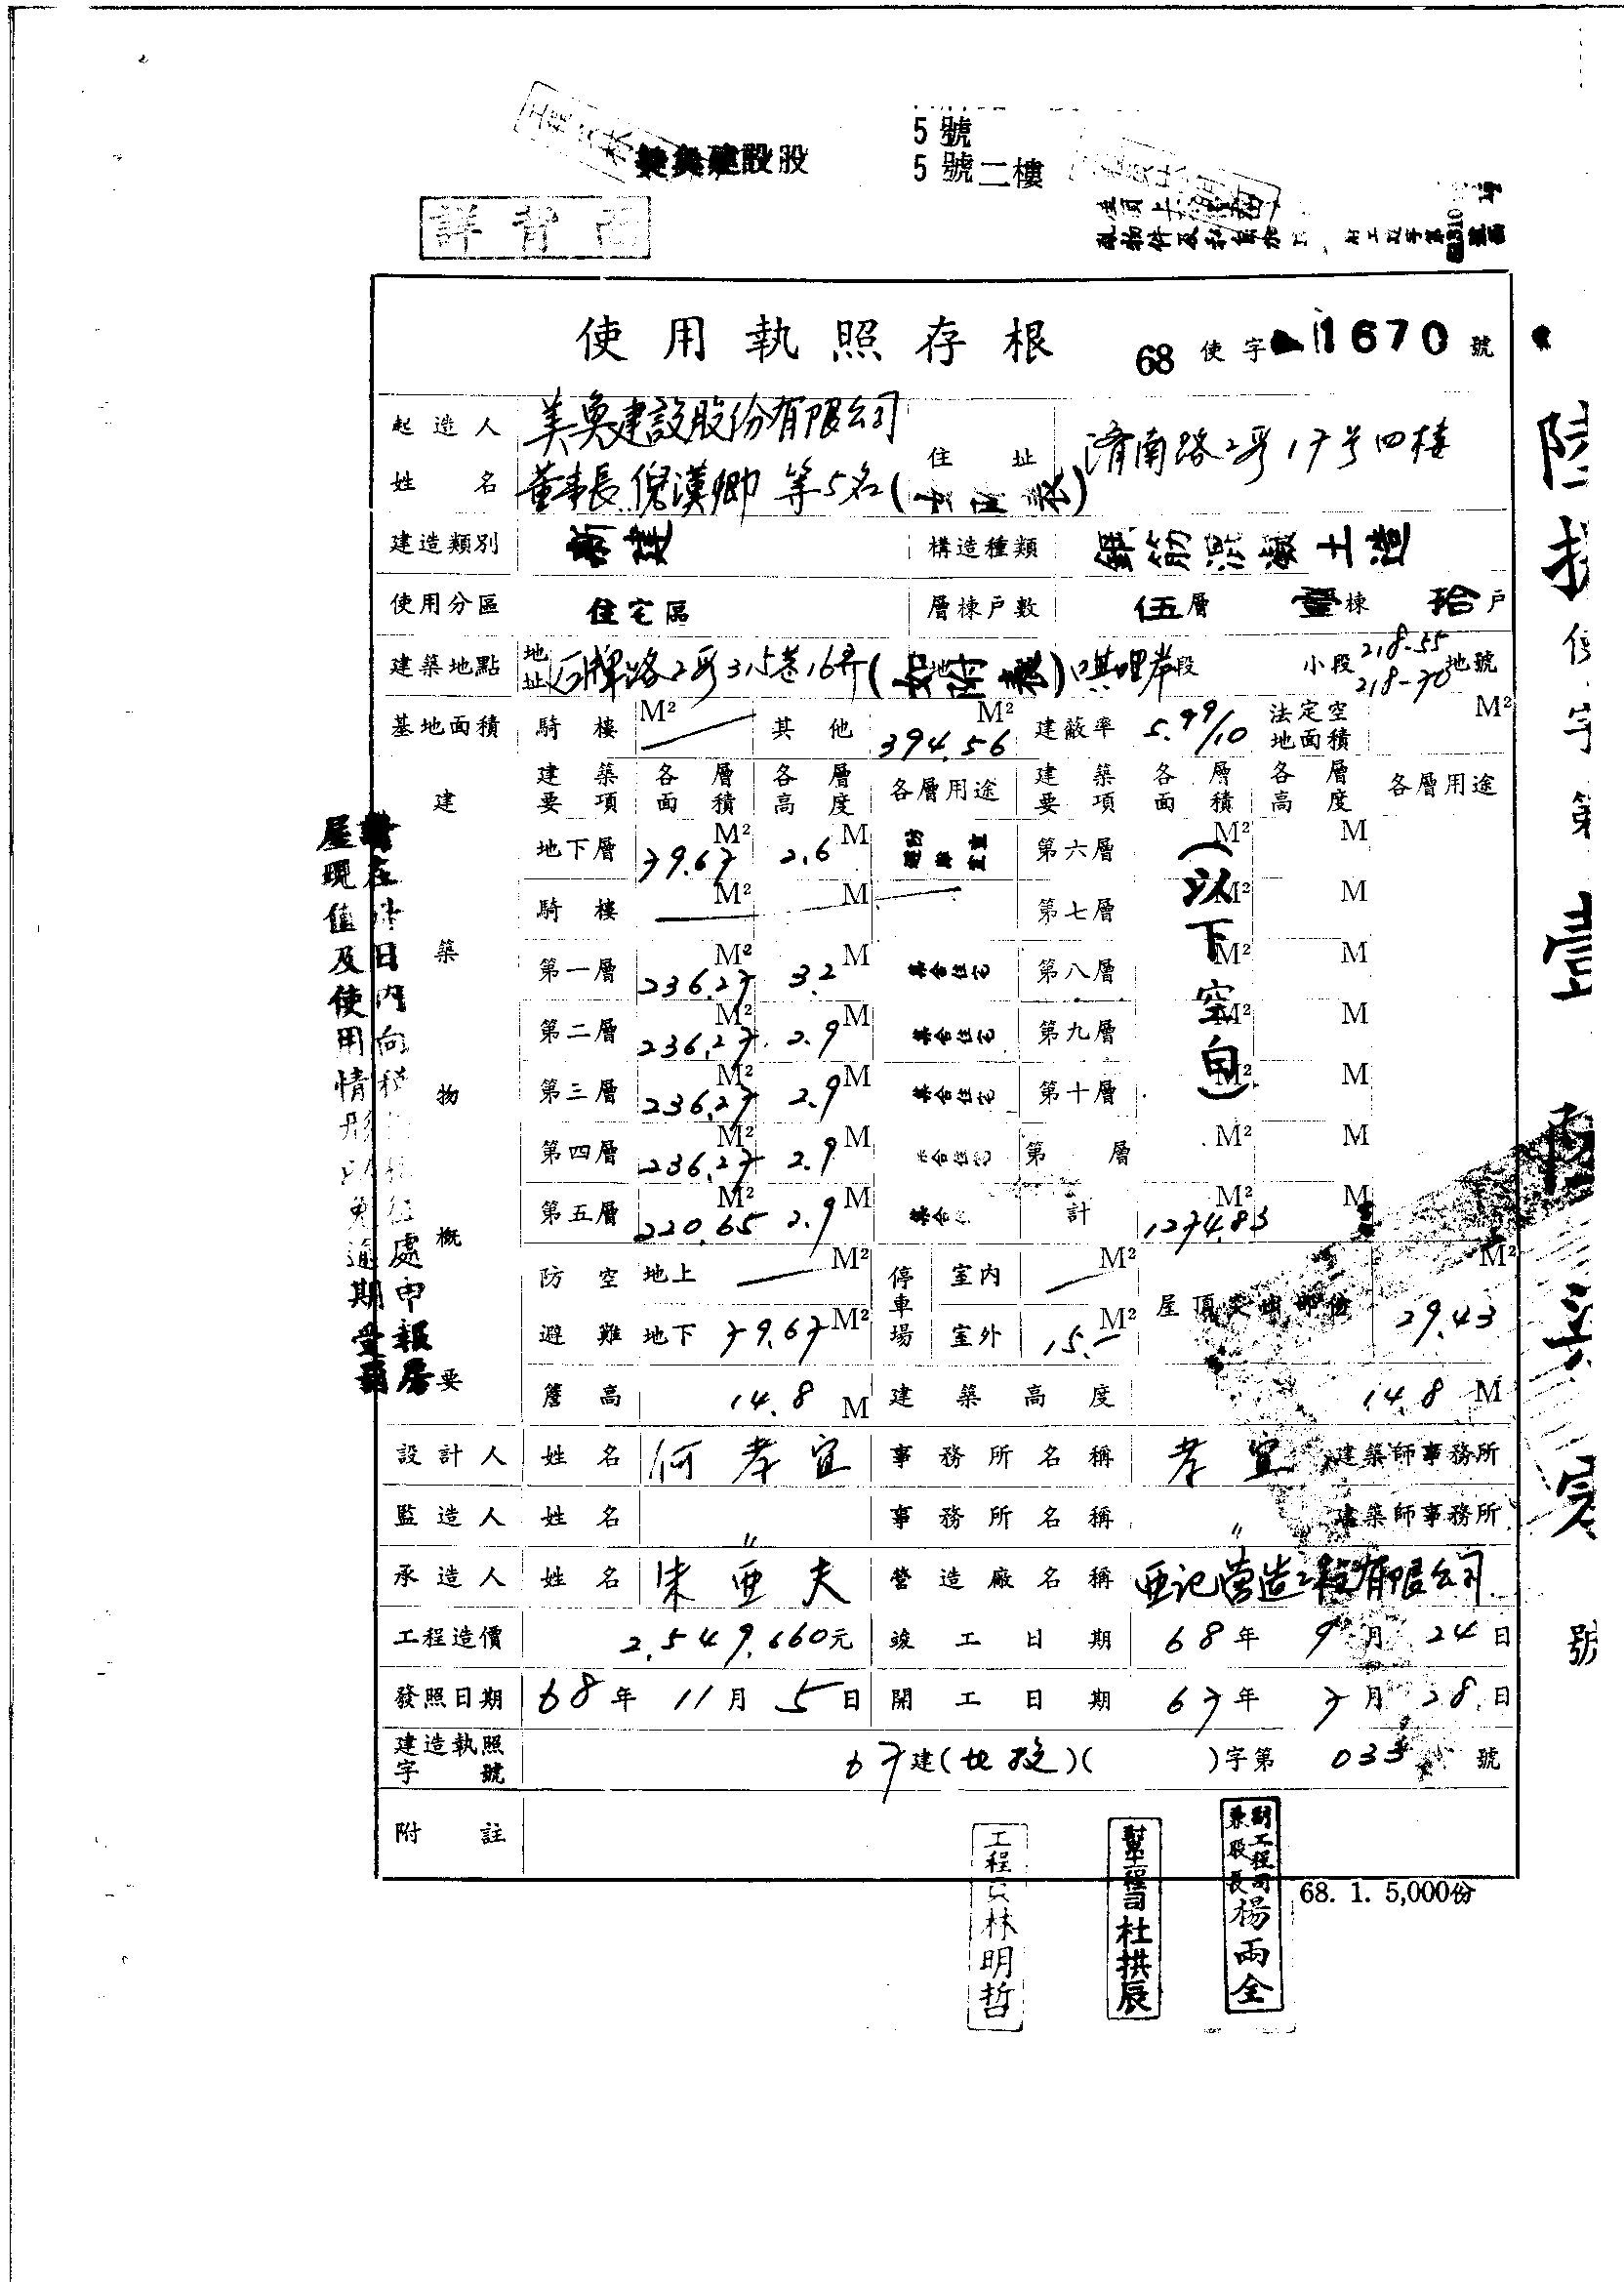 建設股
5號
5號二樓
詳背面
使用執照存根
68 使字 1670 號
起造人姓名 美奐建設股份有限公司
董事長 倪漢卿 等5名
住址 濟南路2段17号四樓
建造類別 新建 構造種類 鋼筋混凝土造
使用分區 住宅區 層棟戶數 伍層 壹棟 拾戶
建築地點 地址 石牌路2段315巷16弄 地 唭哩岸段 小段 218-55 218-70 地號
基地面積 騎樓 M² 其他 394.56 M² 建蔽率 5.99/10 法定空地面積 M²
建築物概要
建築要項 各層面積 各層高度 各層用途 建築要項 各層面積 各層高度 各層用途
地下層 79.67 M² 2.6 M 第六層 M² M
騎樓 M² M 第七層 M² M
第一層 236.27 M² 3.2 M 集合住宅 第八層 M² M
第二層 236.27 M² 2.9 M 集合住宅 第九層 M² M
第三層 236.27 M² 2.9 M 集合住宅 第十層 M² M
第四層 236.27 M² 2.9 M 集合住宅 第 層 M² M
第五層 220.65 M² 2.9 M 集合 計 1274.83 M² M
(以下空白)
防空避難 地上 M² 地下 79.67 M² 停車場 室內 M² 室外 15.- M² 屋頂突出部份 29.43 M²
簷高 14.8 M 建築高度 14.8 M
設計人 姓名 何孝宜 事務所名稱 孝宜 建築師事務所
監造人 姓名 〃 事務所名稱 〃 建築師事務所
承造人 姓名 朱亞夫 營造廠名稱 亞記營造工程有限公司
工程造價 2,549,660元 竣工日期 68年 9月 24日
發照日期 68年 11月 5日 開工日期 67年 7月 28日
建造執照字號 67建(北投)( )字第 033 號
附註
屋現值及使用情形
日內向稅
處申報
逾期
68. 1. 5,000份
工程員林明哲
幫工程司杜拱辰
副工程司兼股長楊雨全
使字第壹陸柒
號